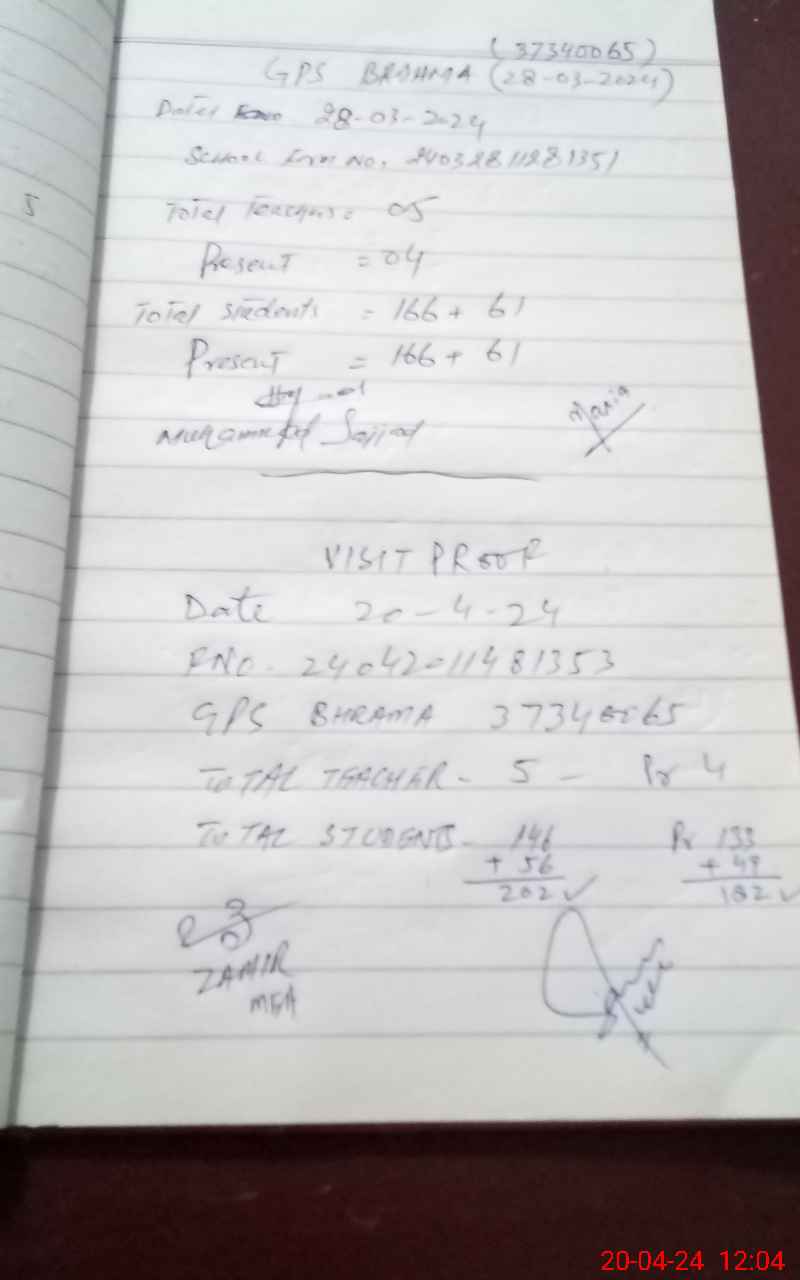 5
(37340065)
GPS BROHMA (28-03-2024)
Date 28-03-2024
School Form No. 24032811281351
Total Teachers = 05
Present = 04
Total Students = 166 + 61
Present = 166 + 61
Muhammad Sajjad
Maria
VISIT PROOF
Date 20-4-24
FNO. 24042011481353
GPS BHRAMA 37340065
TOTAL TEACHER - 5 - Pr 4
TOTAL STUDENTS - 146 Pr 133
+ 56 + 49
202 ✓ 182 ✓
ZAMIR
MEA
20-04-24 12:04